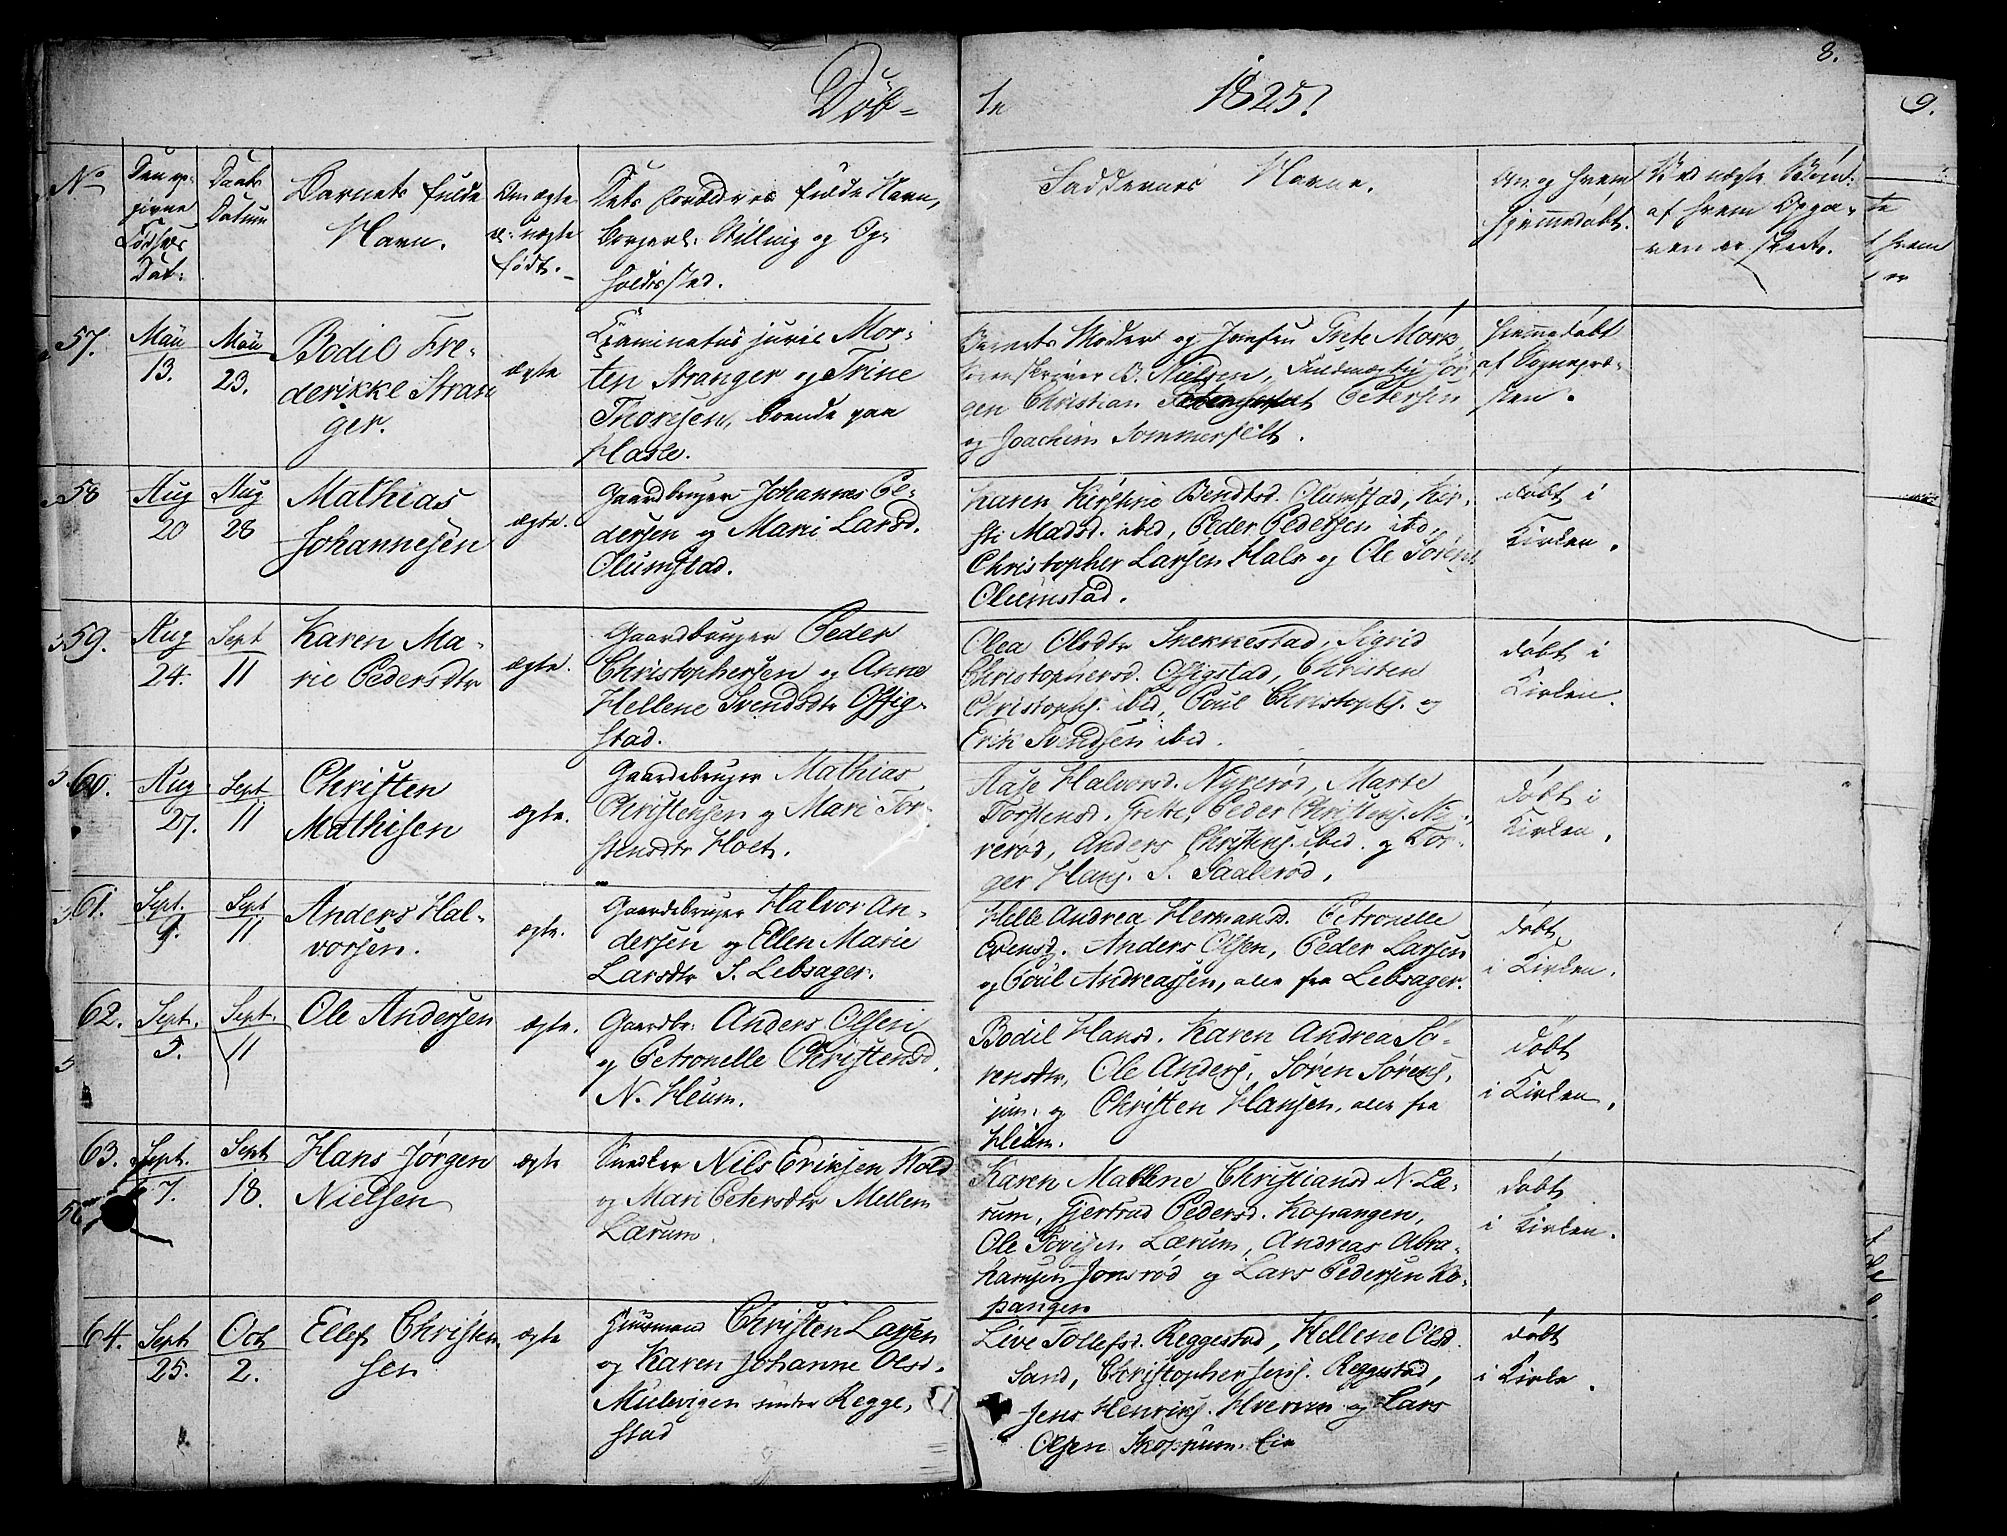 Døb-
te 1825.
8.
9.
No
Den op-
givne
Fødsels
Dat:
Daabs
Datum
Barnets fulde
Navn.
Om ægte
el: uægte
født.
Dets Forældres fulde Navn,
borgerl: Stilling og Op-
holdssted.
Faddernes Navne.
og hvem
hjemmedøbt.
Ved uægte Børn:
af hvem Opga-
ven er skeet.
te
t hvem
er
57.
Mai
13.
Mai
23.
Bodil Fre-
derikke Stran
ger.
ægte
Examinatus juris Mor-
ten Stranger og Trine
Thoresen, boende paa
Hasle.
Barnets Moder og Jomfru Grete Mørk,
B. Nielsen, Fuldmægtig Jør-
gen Christian Petersen
og Joachim Sommerfelt.
hjemmedøbt
af Sognepræ-
sten.
58
Aug
20
Aug
28
Mathias
Johannesen
ægte.
Gaardbruger Johannes Pe-
dersen og Mari Larsd.
Olumstad.
Karen Kirstine Bendtsd. Olumstad, Kir-
sti Madsd. ibid, Peder Pedersen ibd,
Christopher Larsen Hals og Ole Sørens
Olumstad.
døbt i
Kirken.
59.
Aug
24.
Sept
11
Karen Ma-
rie Pedersdtr
ægte.
Gaardbruger Peder
Christophersen og Anne
Hellene Svendsdtr Offig-
stad.
Olea Olsdtr Snekkestad, Sigrid
Christophersd. Offigstad, Christen
Christophs. ibid, Poul Christophs. og
Erik Svendsen ibid.
døbt i
Kirken.
60.
Aug
27.
Sept
11
Christen
Mathisen
ægte.
Gaardebruger Mathias
Christensen og Mari Tor-
stensdtr Holt.
Aase Halvorsd. Nyrerød, Marte
Torstensd. Peder Christens. Ny-
rerød, Anders Christens. ibid. og Tor-
ger Hans. S. Saalerød,
døbt i
Kirken.
61.
Sept.
9.
Sept
11
Anders Hal-
vorsen.
ægte.
Gaardebruger Halvor An-
dersen og Ellen Marie
Larsdtr S. Lebsager.
Helle Andrea Hermansd. Petronelle
Anders Olsen, Peder Larsen
og Poul Andreassen, alle fra Lebsager.
døbt
i Kirken.
62.
Sept.
5.
Sept.
11
Ole Andersen
ægte.
Gaardbr: Anders Olsen
og Petronelle Christensd.
N. Heum.
Bodil Hansd. Karen Andrea Sø-
rensdtr, Ole Anders, Søren Sørens,
jun. og Christen Hansen, alle fra
Heum.
døbt
i Kirken.
63.
Sept.
7.
Sept
18.
Hans Jørgen
Nielsen
ægte
Snedker Nils Eriksen Wold
og Mari Petersdtr Mellem
Lærum.
Karen Mathene Christiansd N. Læ-
rum, Gjertrud Pedersd. Kopangen,
Ole Lærum, Andreas Abra-
hamsen Jonsrød og Lars Pedersen Ko-
pangen
døbt
i Kirken.
64.
Sept
25.
Oct
2.
Ellef Christen
sen
ægte
Huusmand Christen Larsen
og Karen Johanne Olsd.
Mulevigen under Regge-
stad
Live Tollefsd. Reggestad, Hellene Olsd.
Sand, Christopher Jens. Reggestad,
Jens Henriks. og Lars
Olsen Skoppum.
døbt
i Kirke.